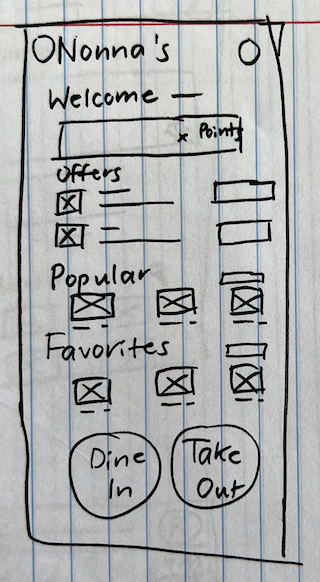 Nonna's
Welcome
x Points
Offers
Popular
Favorites
Dine
In
Take
Out